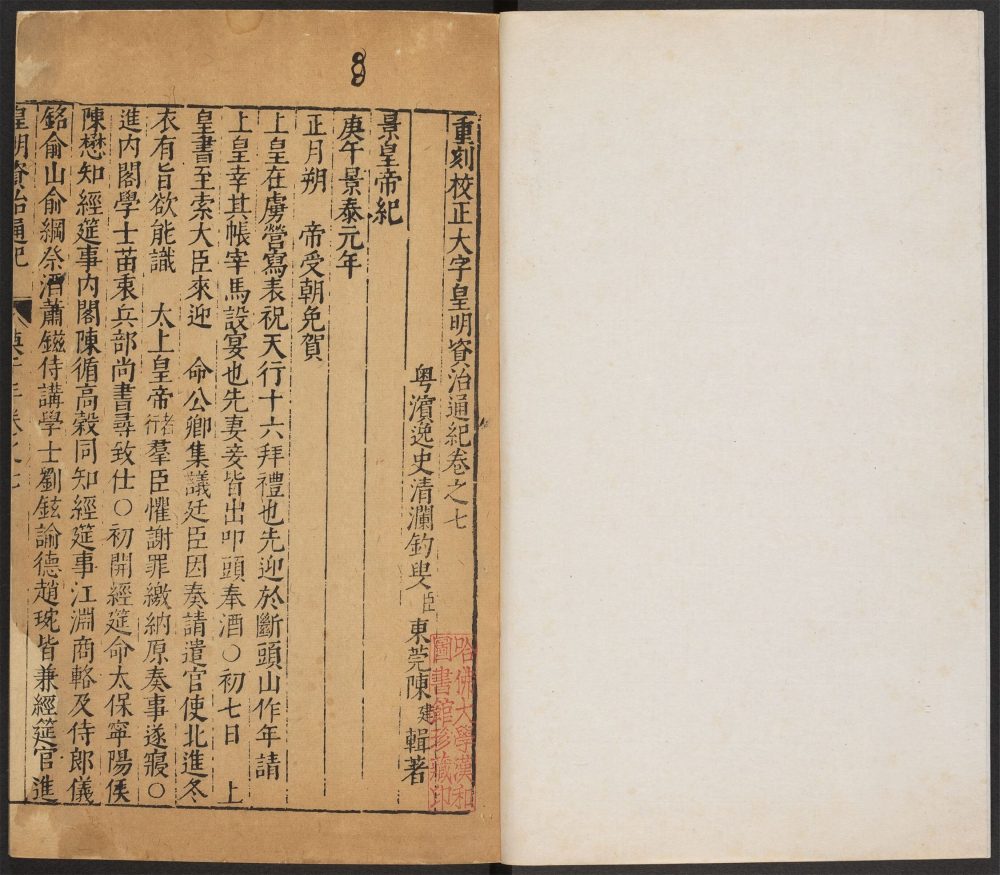 重刻校正大字皇明資治通紀卷之七
粤濱逸史清瀾釣叟臣東莞陳建輯著
景皇帝紀
庚午景泰元年
正月朔　帝受朝免賀
上皇在虜營寫表祝天行十六拜禮也先迎於斷頭山作年請
上皇幸其帳宰馬設宴也先妻妾皆出叩頭奉酒○初七日　上
皇書至索大臣來迎　命公卿集議廷臣因奏請遣官使北進冬
衣有旨欲能識　太上皇帝者行羣臣懼謝罪繳納原奏事遂寢○
進内閣學士苗衷兵部尚書尋致仕○初開經筵命太保寧陽侯
陳懋知經筵事内閣陳循高穀同知經筵事江淵商輅及侍郎儀
銘俞山俞綱祭酒蕭鎡侍講學士劉鉉諭德趙琬皆兼經筵官進
皇明資治通紀　卷之七
哈佛大學漢和
圖書館珍藏印
8